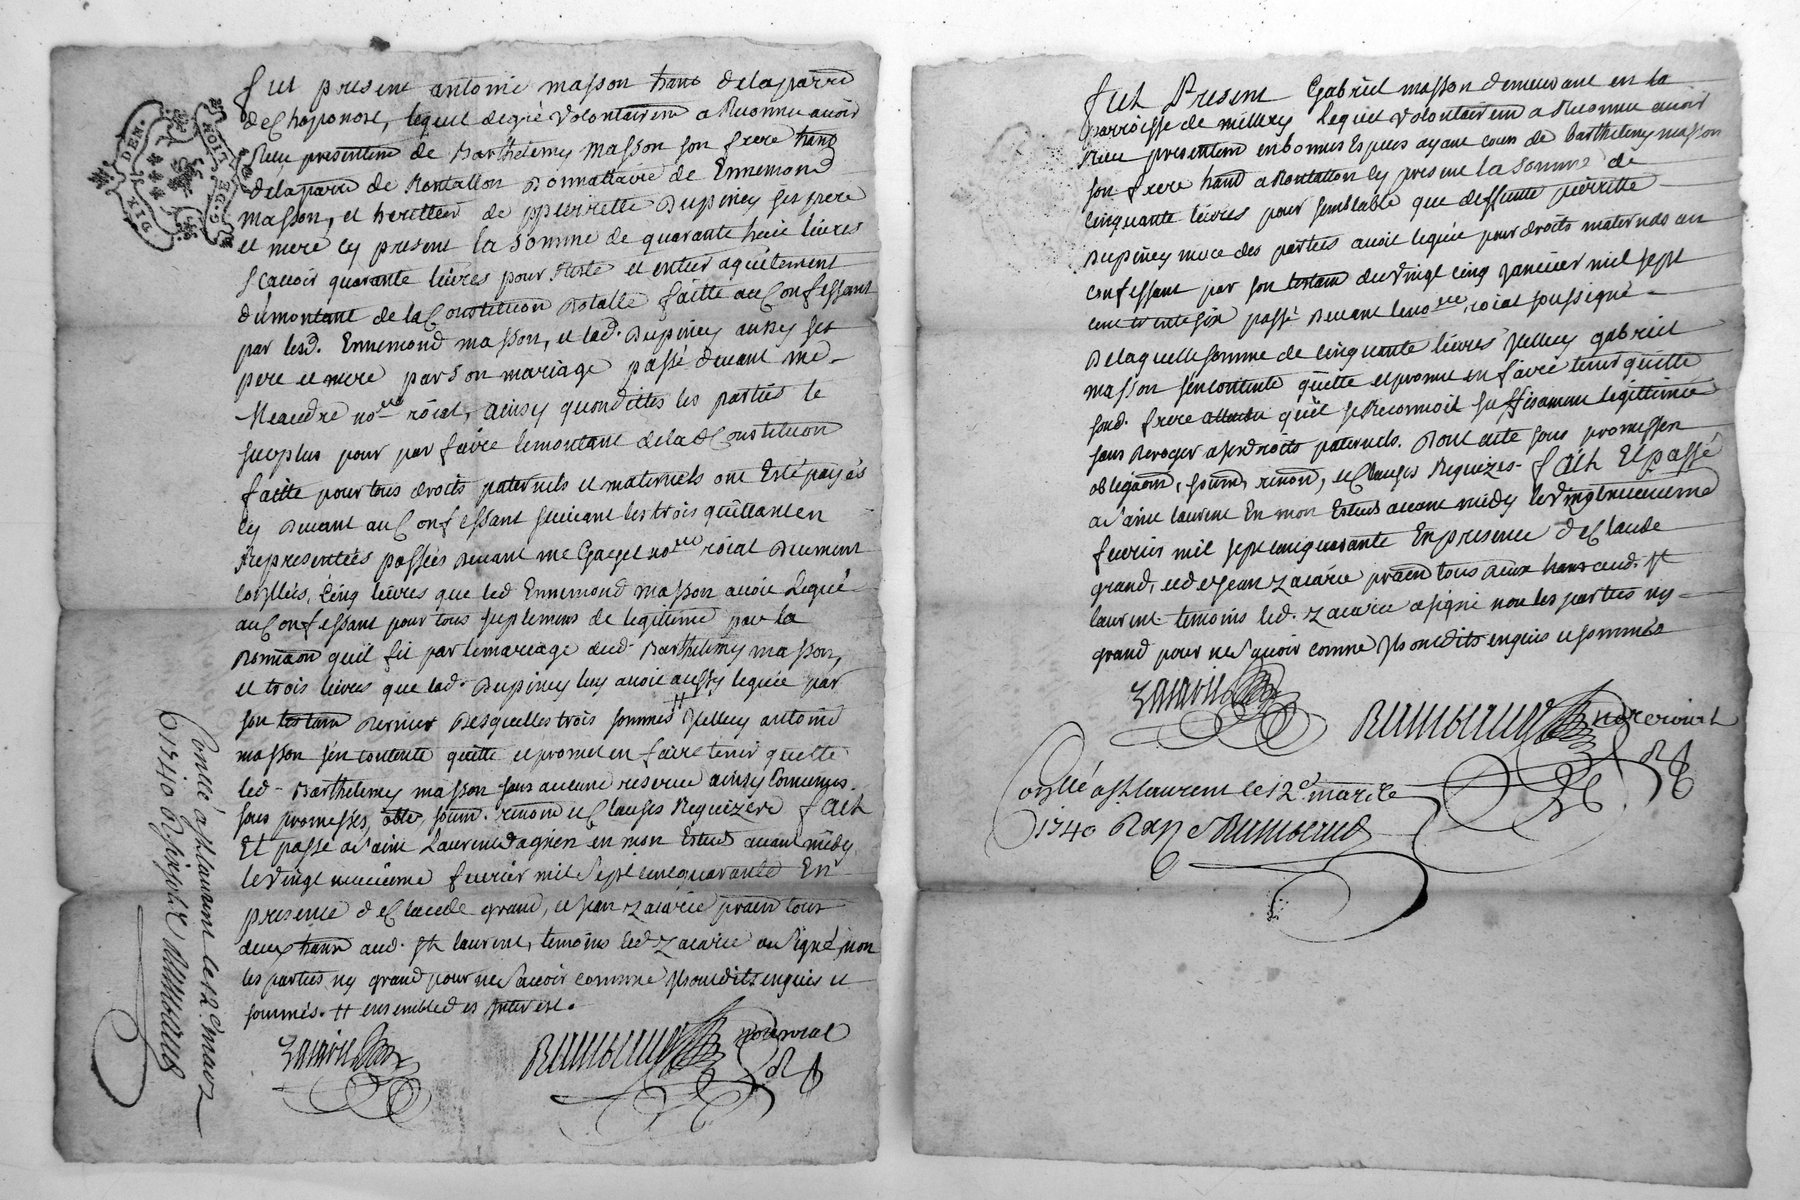 fut present antoine masson habt de la parre
de Chaponost, lequel de gré volontairemt a Reconnu avoir
Receu presentemt de Barthelemy Masson son frere habt
de la parre de Rontallon Donnattaire de Ennemond
masson, et heritier de pierrette Dupiney ses pere
et mere cy present la somme de quarante huit livres
scavoir quarante livres pour Reste et entier aquittement
du montant de la Constitution Dotalle faitte au Confessant
par lesd. Ennemond masson, et lad. Dupiney aussy ses
pere et mere par son mariage passé devant me
no.re roial, ainsy quont dittes les parties le
surplus pour parfaire le montant de lad Constitution
faitte pour tous droits paternels et maternels ont Esté payés
cy devant au Confessant suivant les trois quittances
Representées passées devant me no.re roial Deument
Collées, Cinq livres que led Ennemond masson avoit Legué
au Confessant pour tous suplemens de legitime par la
Donnaon quil fit par le mariage dud. Barthelemy masson,
et trois livres que lad. Dupiney luy avoit aussy legué par
son testamt Dernier Desquelles trois sommes # Jcelluy antoine
masson sen contente quitte et promet en faire tenir quitte
led. Barthelemy masson sans aucune reserve ainsy Convenus.
sous promesses, obles, soum. renon et Clauses Requizes fait
Et passé a saint Laurent dagnien en mon Estude avant midy
le vingt neufieme fevrier mil sept cent quarante En
presence de Claude grand, et jean zacarie praen tous
deux habn aud. st laurent, temoins led zacarie a signé, non
les parties ny grand pour ne scavoir comme Jls ont dit enquis et
sommés. # ensemble des Interest.
zacarie
no.re roial
Conllé a st laurent le 12e mars
1740
fut Present Gabriel masson demeurant en la
parroisse de millery lequel volontairemt a Reconnu avoir
Receu presentemt en bonnes Especes ayant cours de barthelemy masson
son frere habt a Rontallon cy present la somme de
cinquante livres pour semblable que deffunte pierrette
Dupiney mere des parties avoit leguée pour droits maternels au
confessant par son testamt du vingt cinq janvier mil sept
cent trente six passé devant le no.re roial soussigné
De laquelle somme de cinquante livres Jcelluy gabriel
masson sen contente quitte et promet en faire tenir quitte
sond. frere quil se Reconnoit suffisament legittimé
sans deroger a ses droits paternels. Dont acte sous promesses
obligaons, soumn, renon, et Clauses Requizes. fait Et passé
a saint laurent En mon Estude avant midy le vingt neufieme
fevrier mil sept cent quarante En presence de Claude
grand, et de jean zacarie praen tous deux habn aud. st
laurent temoins led. zacarie a signé non les parties ny
grand pour ne scavoir comme Jls ont dit enquis et sommés
zacarie
no.re roial
Conllé a st laurent le 12e mars
1740